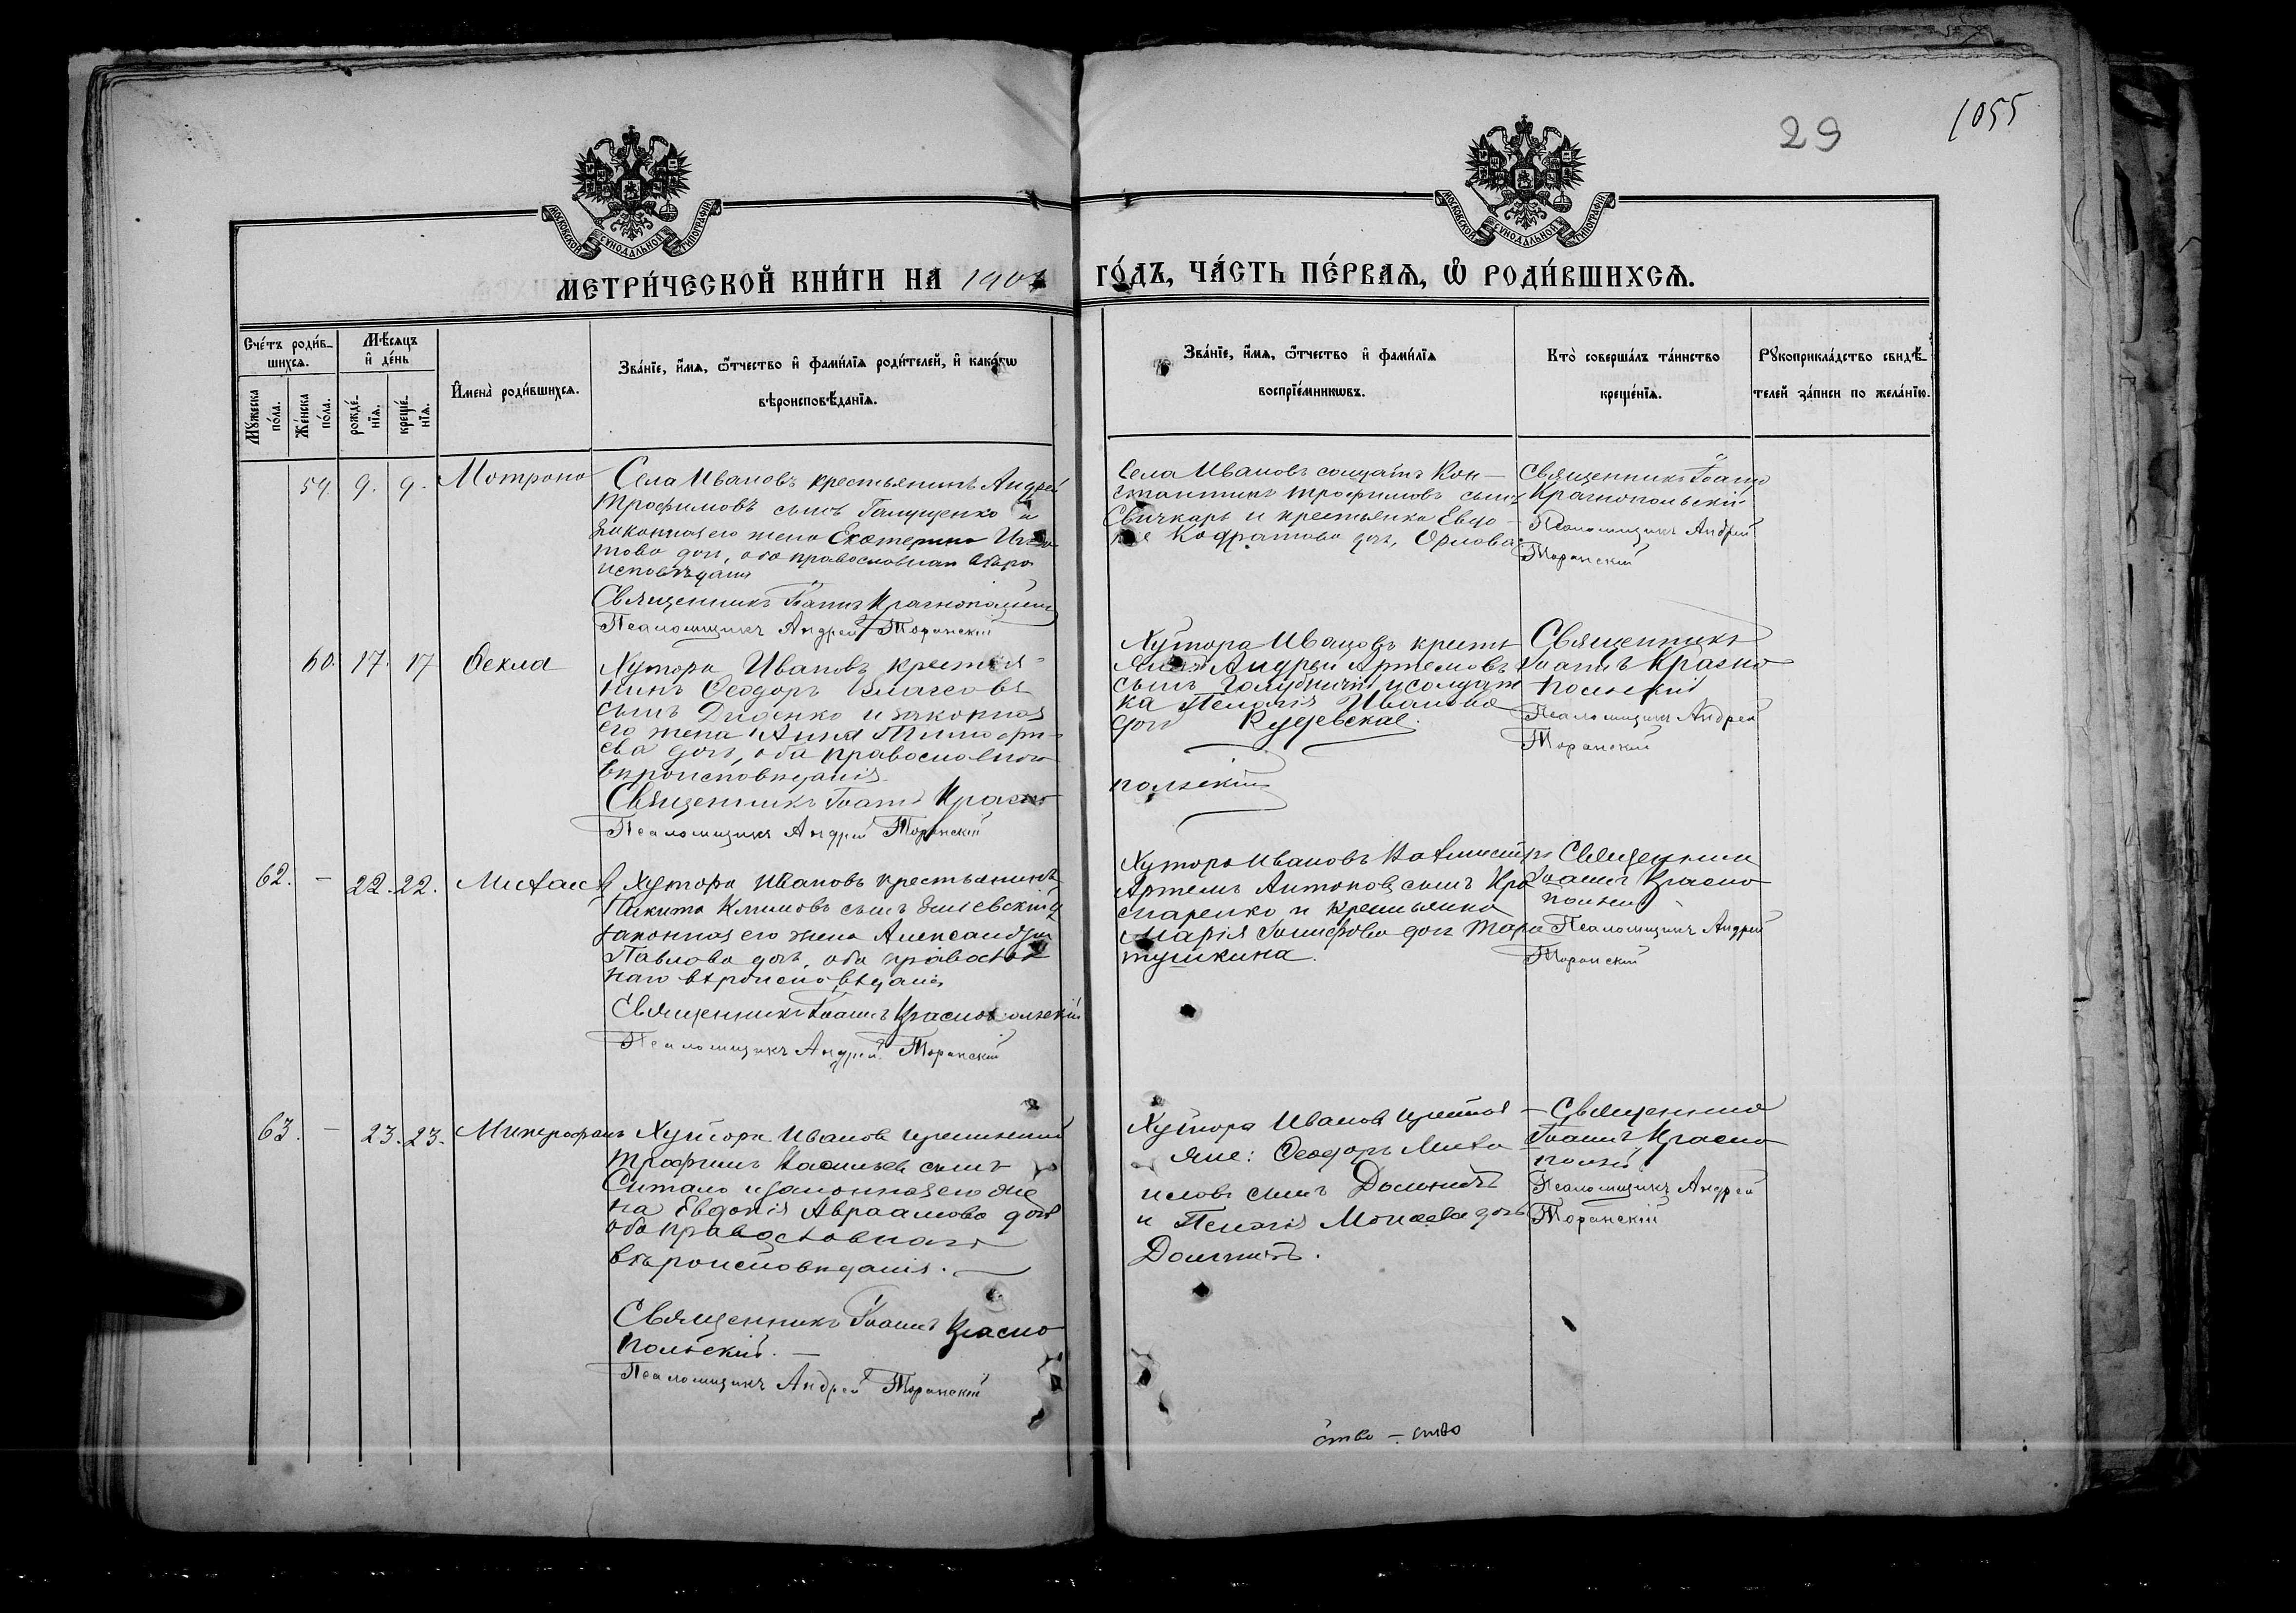 29
1055
МОСКОВСКОЙ СѴНОДАЛЬНОЙ ТИПОГРАФІИ
МОСКОВСКОЙ СѴНОДАЛЬНОЙ ТИПОГРАФІИ
МЕТРИ́ЧЕСКОЙ КНИ́ГИ НА 190
ГО́ДЪ, ЧА́СТЬ ПЕ́РВАѦ, Ѡ РОДИ́ВШИХСѦ.
Сче́тъ роди́в-
шихся.
Мѣ́сяцъ
и҆ де́нь
Мꙋ́жеска
по́ла.
Же́нска
по́ла.
рожде́-
нїѧ.
креще́-
нїѧ.
И҆мена̀ роди́вшихсѧ.
Зва́нїе, и҆́мѧ, ѻ҆́тчество и҆ фами́лїѧ роди́телей, и҆ како́гѡ
вѣроисповѣ́данїѧ.
Зва́нїе, и҆́мѧ, ѻ҆́тчество и҆ фами́лїѧ
воспрїе́мникѡвъ.
Кто̀ соверша́лъ та́инство
креще́нїѧ.
Рꙋкоприкла́дство свидѣ́-
телей за́писи по жела́нїю.
59. 9. 9. Мотрона
Села Ивановъ крестьянинъ Андрей
Трофимовъ сынъ Галущенко и
законная его жена Екатерина
доч, оба православнаго вѣро
исповѣданія
Священникъ Іоаннъ Краснопольскій
Псаломщикъ Андрей Торанскій
Села Ивановъ солдатъ Кон-
стантинъ Трофимовъ сынъ
Свичкарь и крестьянка Евдо-
кія Кодратова доч, Орлова
Священникъ Іоаннъ
Краснопольскій
Псаломщикъ Андрей
Торанскій
60. 17. 17 Ѳекла
Хутора Ивановъ крестья-
нинъ Ѳеодоръ Власовъ
сынъ Диденко и законная
его жена Анна Тимофе-
ева доч, оба православнаго
вѣроисповѣданія
Священникъ Іоаннъ Красно
Псаломщикъ Андрей Торанскій
Хутора Ивановъ кресть
Андрей Артемовъ
сынъ Голубничій и солдат
ка Пелагія Иванова
доч
польскій
Священникъ
Іоаннъ Красно
польскій
Псаломщикъ Андрей
Торанскій
62. – 22. 22. Михаил
Хутора Ивановъ крестьянинъ
Никита Климовъ сынъ
законная его жена Александра
Павлова доч, оба православ
наго вѣроисповѣданія
Священникъ Іоаннъ Краснопольскій
Псаломщикъ Андрей Торанскій
Хутора Ивановъ
Артемъ Антоновъ сынъ
и крестьянка
Марія Іосифова доч Тара
тушкина.
Священникъ
Іоаннъ Красно
польскій
Псаломщикъ Андрей
Торанскій
63. – 23. 23. Митрофанъ
Хутора Иванова крестьянинъ
Трофимъ Васильевъ сынъ
Ситало и законная его же
на Евдокія Авраамова доч
оба православнаго
вѣроисповѣданія.
Священникъ Іоаннъ Красно
польскій. –
Псаломщикъ Андрей Торанскій
Хутора Иванова крестья
яне: Ѳеодоръ Миха
иловъ сынъ
и Пелагія Моисеева доч
Священникъ
Іоаннъ Красно
польскій
Псаломщикъ Андрей
Торанскій
ство – ство